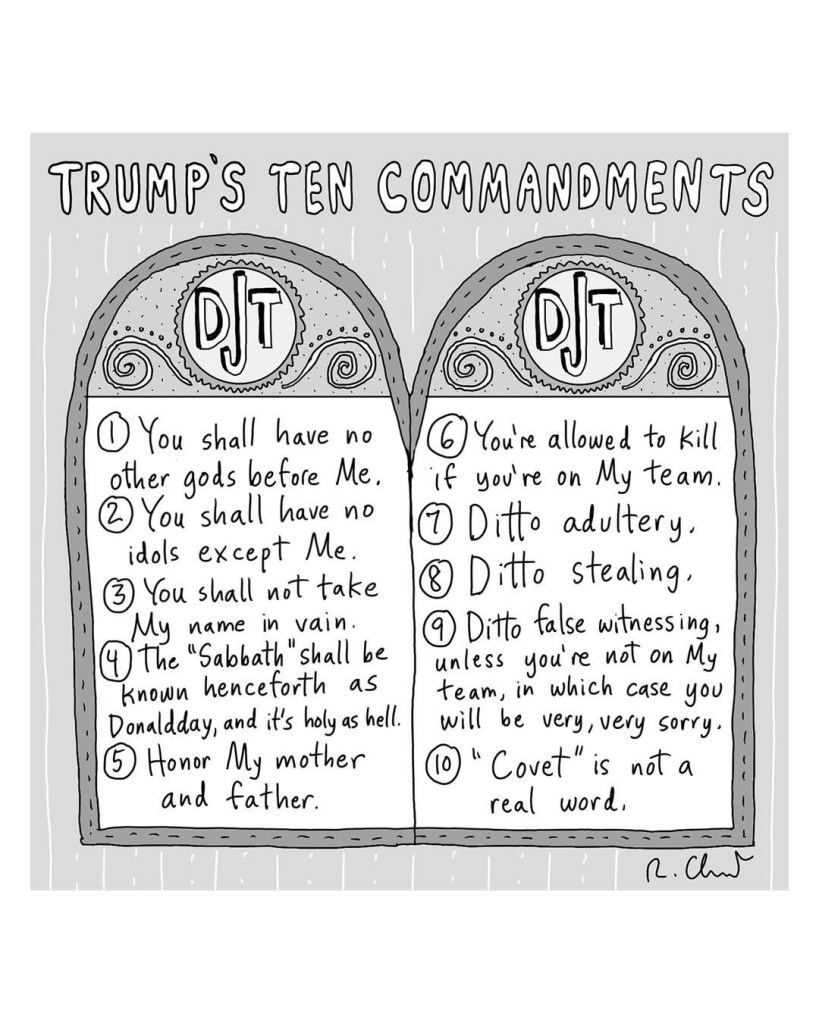 TRUMP'S TEN COMMANDMENTS
DJT
① You shall have no
other gods before Me.
② You shall have no
idols except Me.
③ You shall not take
My name in vain.
④ The "Sabbath" shall be
known henceforth as
Donaldday, and it's holy as hell.
⑤ Honor My mother
and father.
DJT
⑥ You're allowed to kill
if you're on My team.
⑦ Ditto adultery.
⑧ Ditto stealing.
⑨ Ditto false witnessing,
unless you're not on My
team, in which case you
will be very, very sorry.
⑩ "Covet" is not a
real word.